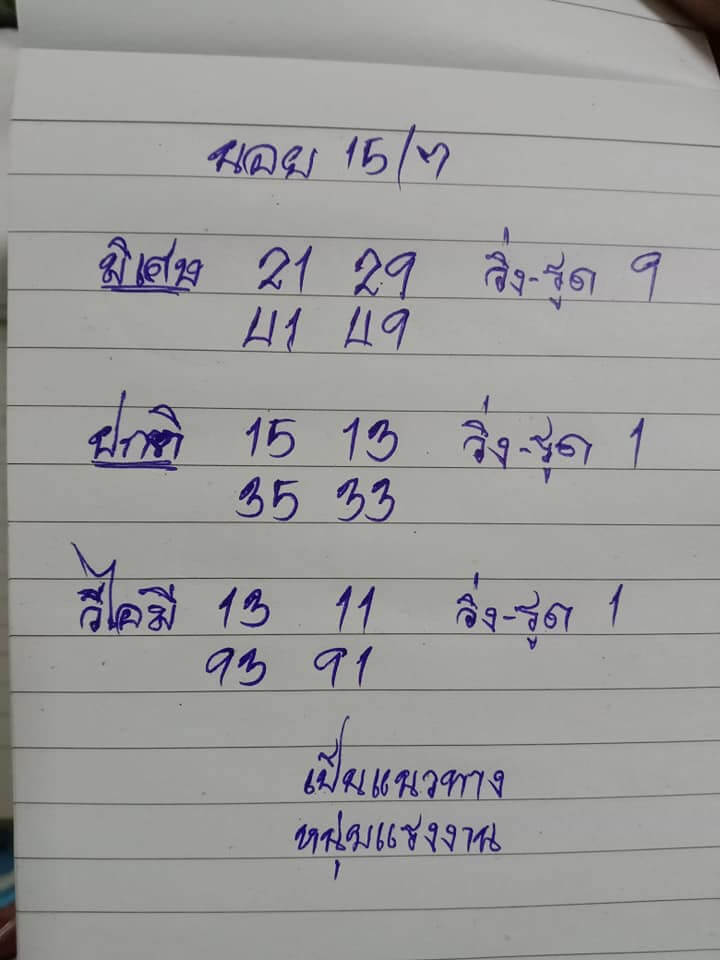 นอย 15/7
พิเศษ 21 29 วิ่ง-รูด 9
41 49
ปกติ 15 13 วิ่ง-รูด 1
35 33
วีไอพี 13 11 วิ่ง-รูด 1
93 91
เป็นแนวทาง
หนุ่มแรงงาน